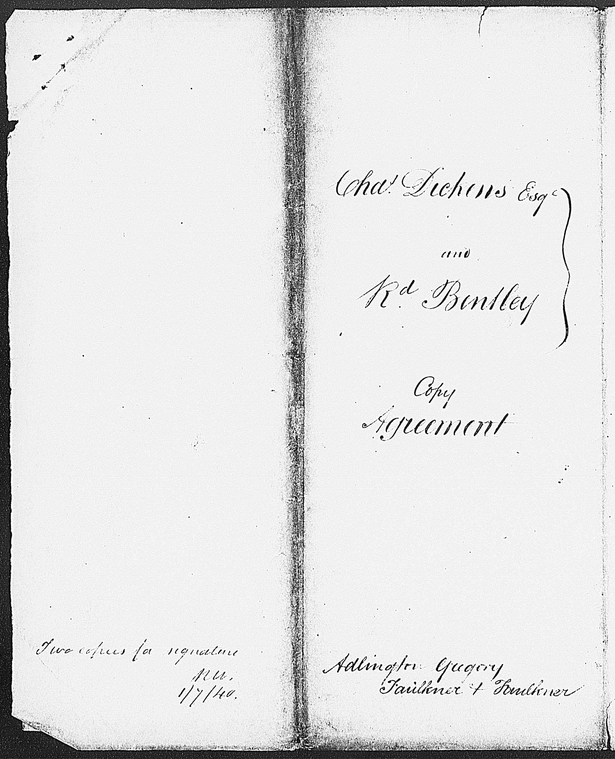 Two copies for signature
1/7/40.
Chas. Dickens Esqe
and
Rd. Bentley
Copy
Agreement
Adlington Gregory
Faulkner & Faulkner